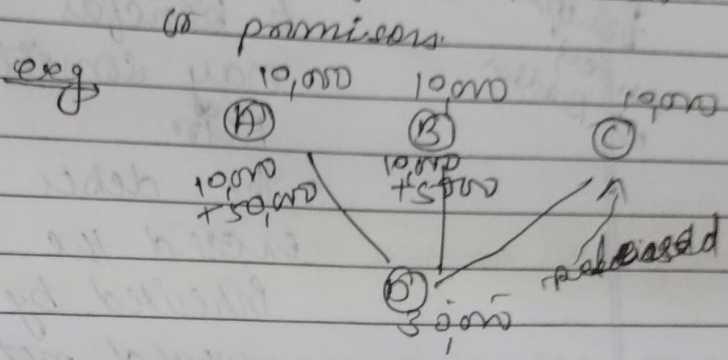 co promisors.
eg
10,000 10,000 10,000
A B C
10,000 10,000
+50,000 +5000
released
D
30,000